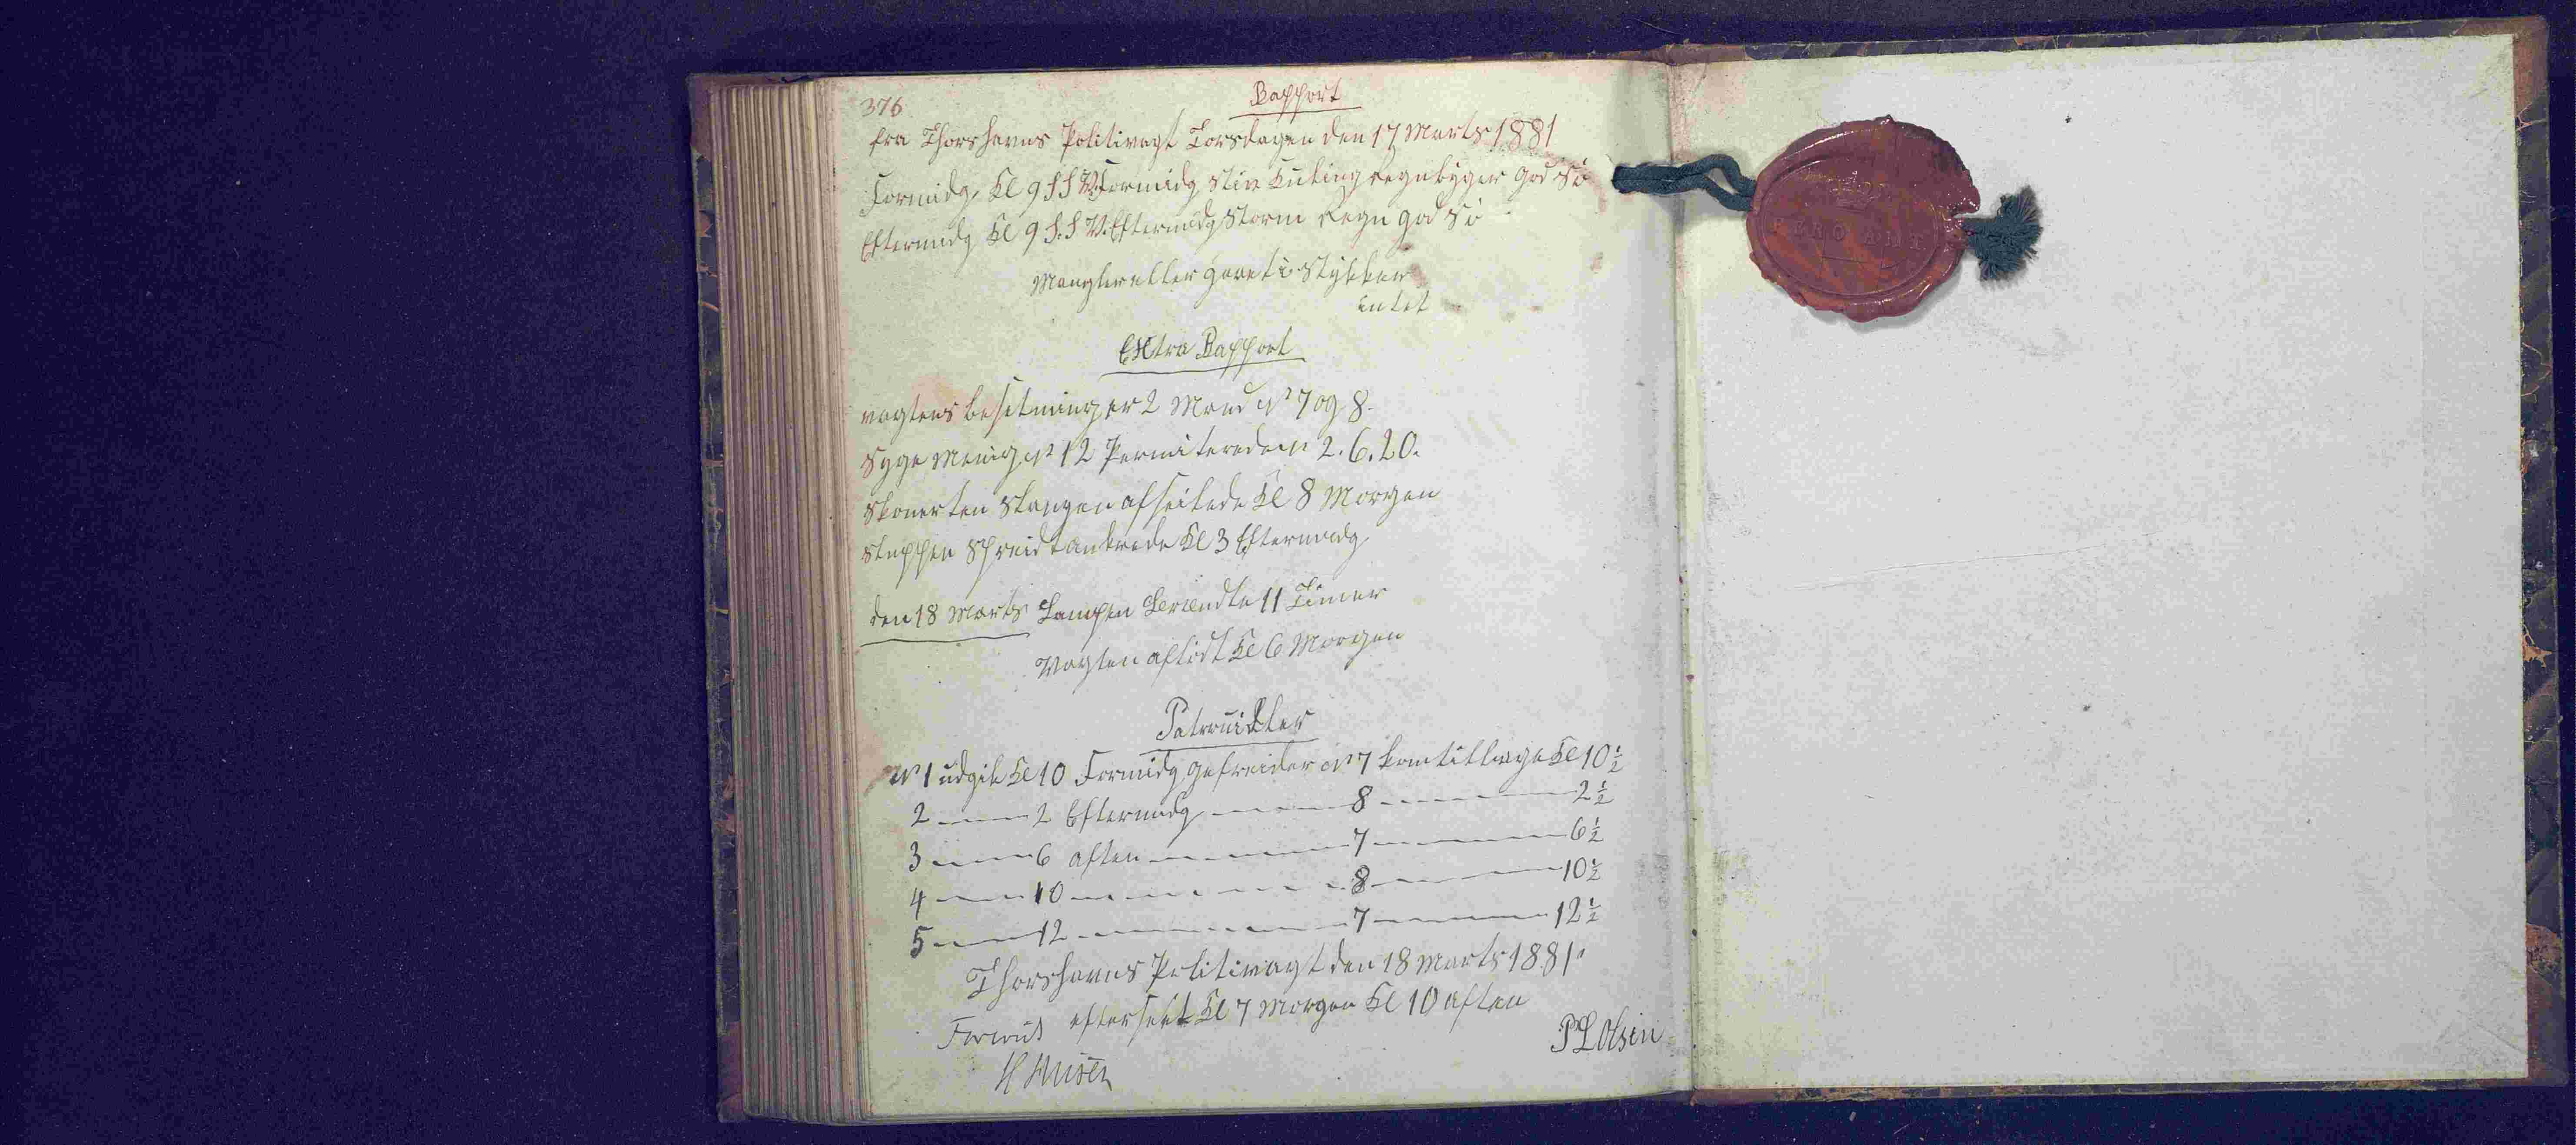 376
Rapport
fra Thorshavns Politivagt Torsdagen den 17 Marts 1881
Formidg Kl 9 S.S.V. Formidg Stiv Kuling Regnbyger God Sö
Eftermidg Kl 9 S.S.V. Eftermidg Storm Regn god Sö
Mangler eller Gaaet i Stykker
intet
Extra Rapport
vagtens besetning er 2 Mand No 7 og 8.
Syge Menig No 12 Permiterede No 2. 6. 20.
Skonerten Stangen afseilede Kl 8 Morgen
Sluppen ankrede Kl 3 Eftermidg
den 18 Marts Lampen Brændte 11 Timer
Vagten aflöst Kl 6 Morgen
Patrouiller
No 1 udgik Kl 10 Formidg gefreider No 7 kom tilbage Kl 10 ½
2 — 2 Eftermidg — 8 — 2 ½
3 — 6 aften — 7 — 6 ½
4 — 10 — 8 — 10 ½
5 — 12 — 7 — 12 ½
Thorshavns Politivagt den 18 Marts 1881.
efterseet Kl 7 Morgen Kl 10 aften
P L Olsen
H Hansen
PERO